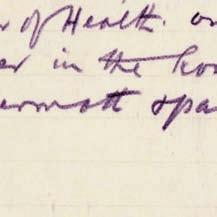 r of Health. on
er in the Ro
ermott spa